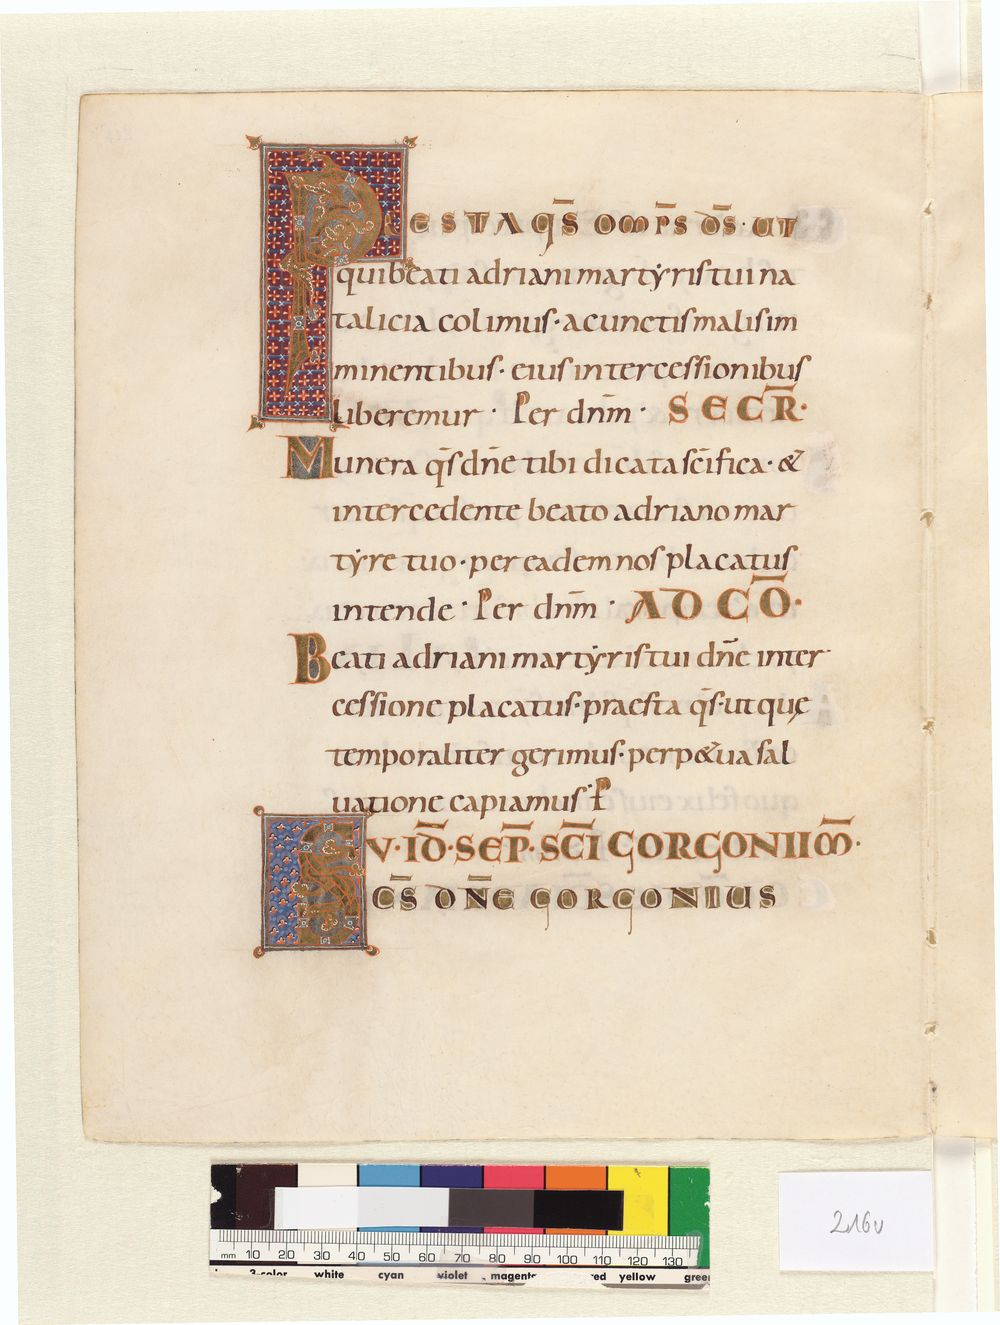 PRESTA Q̄S OMP̄S D̄S· UT
qui beati adriani martẏris tui na
talicia colimus· a cunctis malis im
minentibus· eius intercessionibus
liberemur · Per dn̄m · SECR̄·
Munera q̄s dn̄e tibi dicata sc̄ifica· &
intercedente beato adriano mar
tẏre tuo· per eadem nos placatus
intende · Per dn̄m · AD CŌ·
Beati adriani martẏris tui dn̄e inter
cessione placatus· praesta q̄s· ut quę
temporaliter gerimus· perp&ua sal
uatione capiamus· P
V· ID̄· SEP̄· SC̄I GORGONII M̄·
SC̄S DN̄E GORGONIUS
216v
mm 10 20 30 40 50 60 70 80 90 100 110 120 130
3-color white cyan violet magenta red yellow green